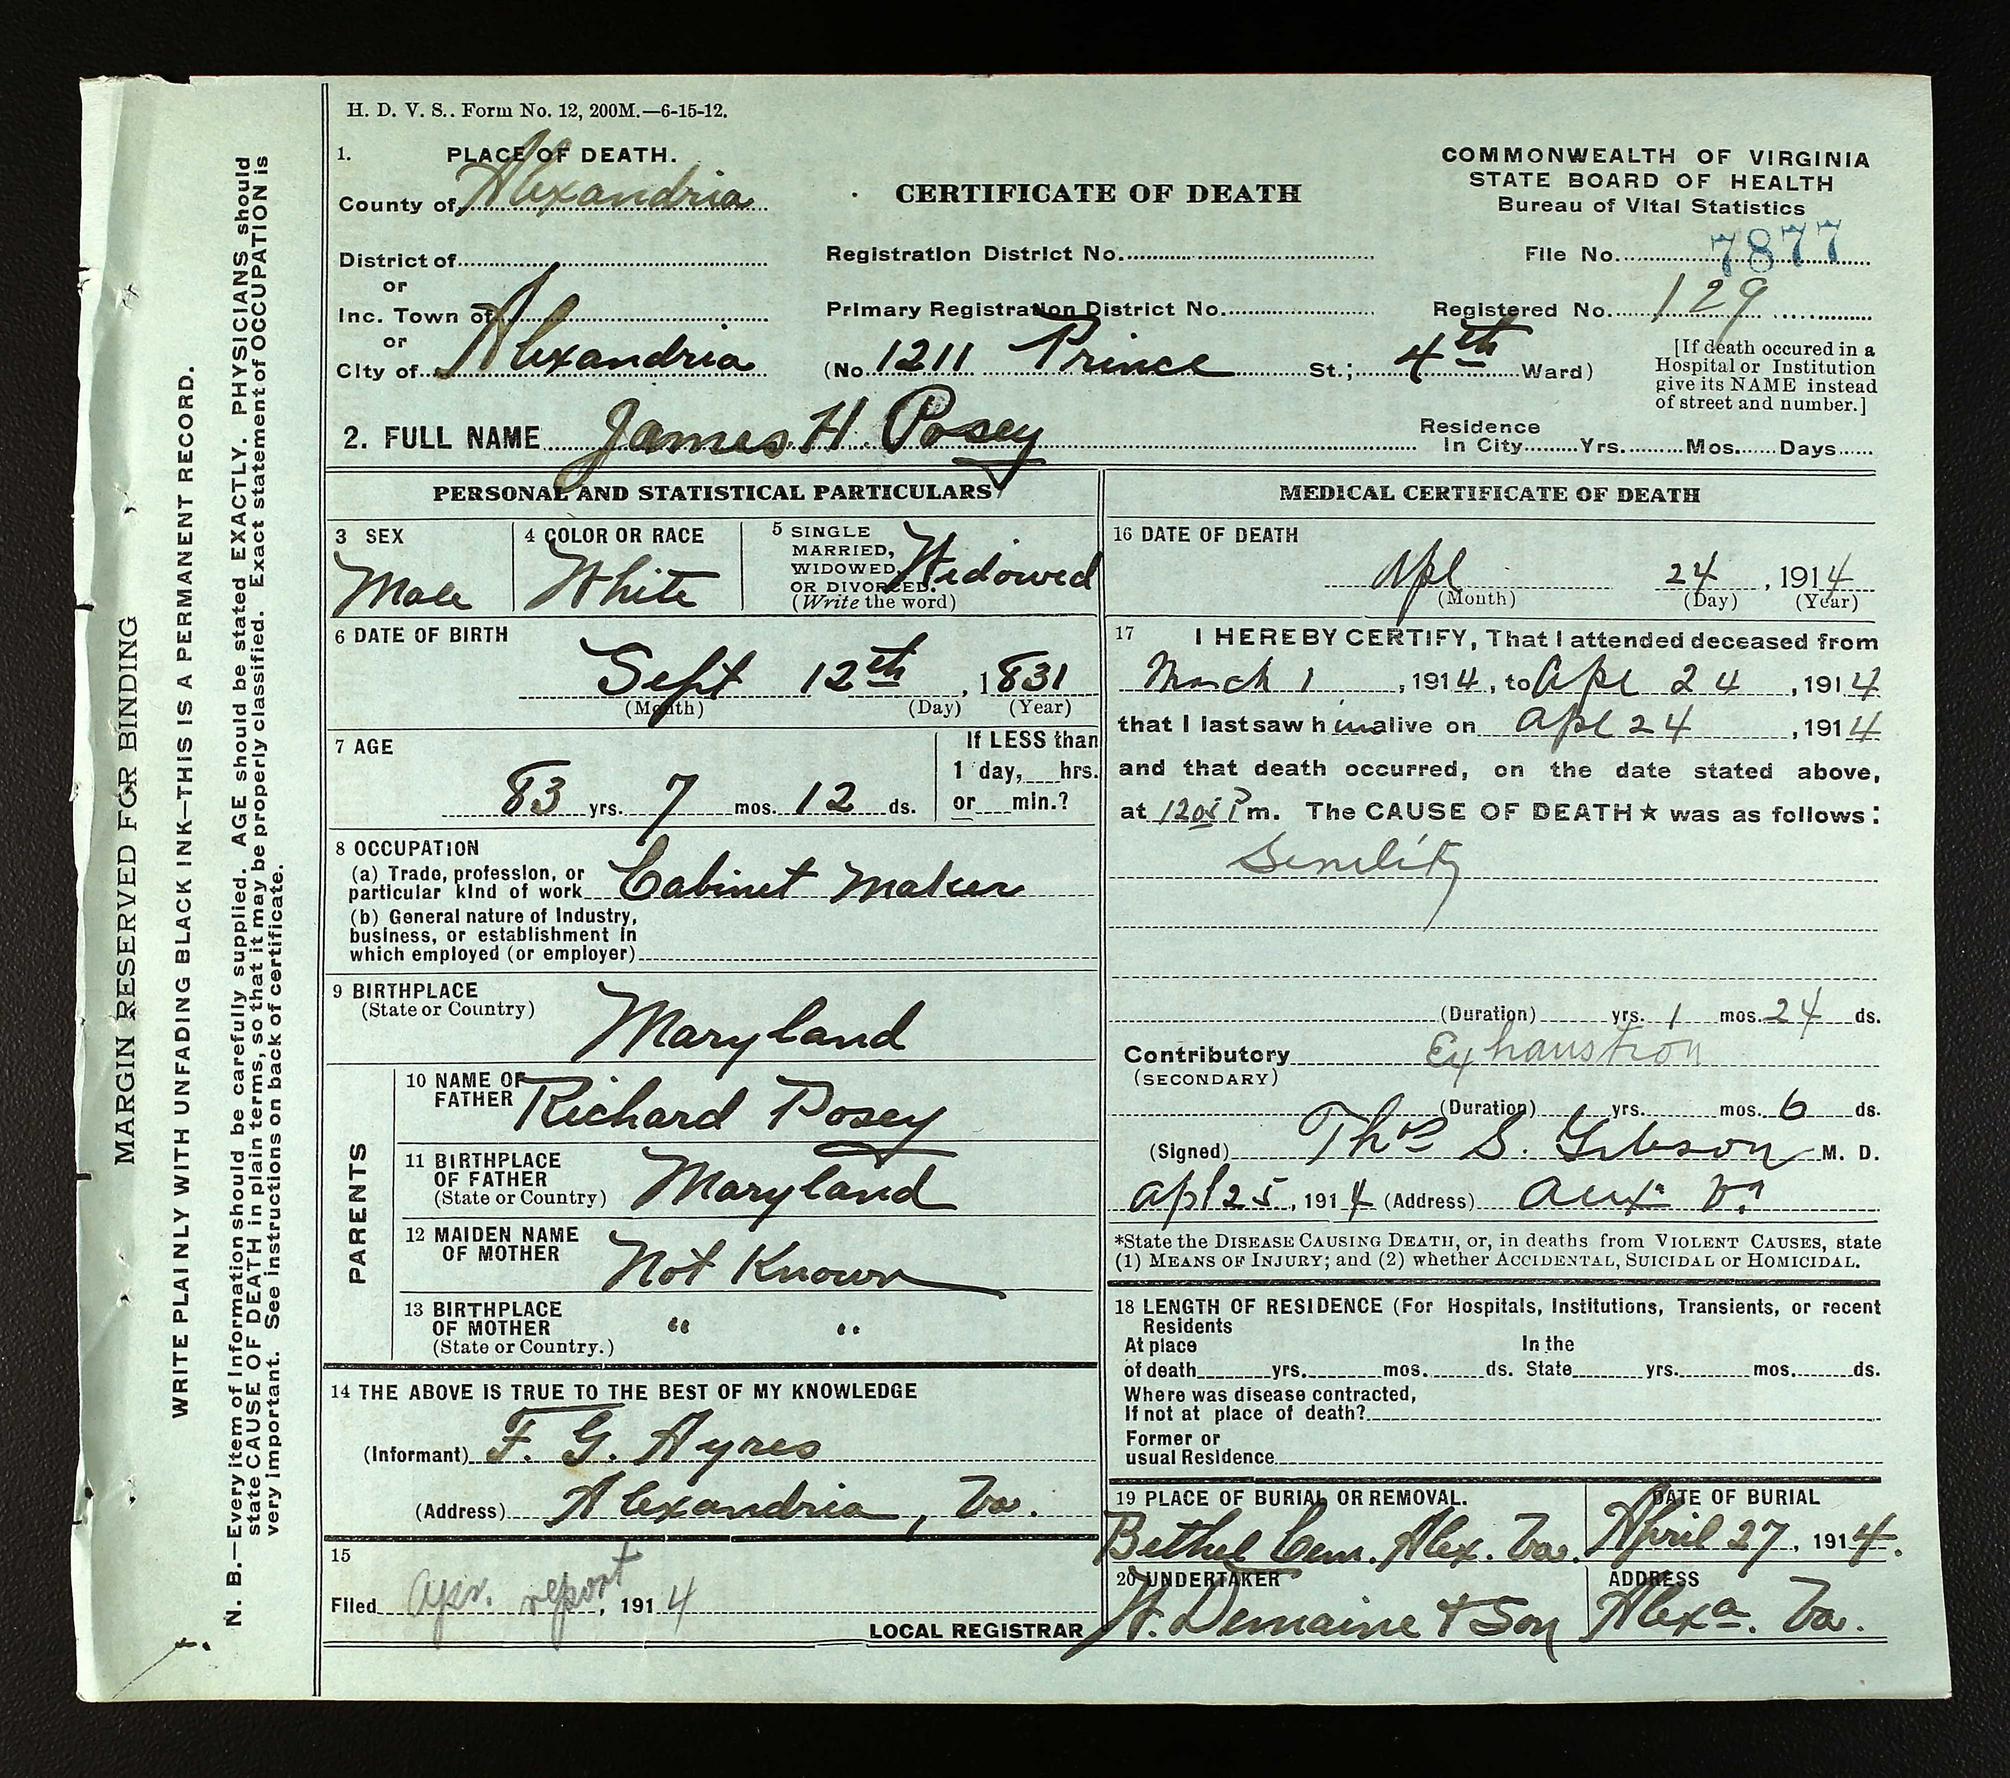 H. D. V. S.. Form No. 12, 200M.—6-15-12.
1. PLACE OF DEATH.
County of Alexandria
District of
or
Inc. Town of
or
City of Alexandria
CERTIFICATE OF DEATH
Registration District No.
Primary Registration District No.
(No. 1211 Prince St.; 4th Ward)
COMMONWEALTH OF VIRGINIA
STATE BOARD OF HEALTH
Bureau of Vital Statistics
File No. 7877
Registered No. 129
[If death occured in a
Hospital or Institution
give its NAME instead
of street and number.]
2. FULL NAME James H. Posey
Residence
In City Yrs. Mos. Days
PERSONAL AND STATISTICAL PARTICULARS
3 SEX
Male
4 COLOR OR RACE
White
5 SINGLE
MARRIED,
WIDOWED,
OR DIVORCED.
(Write the word)
Widowed
6 DATE OF BIRTH
Sept 12th, 1831
(Month) (Day) (Year)
7 AGE
83 yrs. 7 mos. 12 ds.
If LESS than
1 day, hrs.
or min.?
8 OCCUPATION
(a) Trade, profession, or
particular kind of work Cabinet Maker
(b) General nature of Industry,
business, or establishment in
which employed (or employer)
9 BIRTHPLACE
(State or Country)
Maryland
PARENTS
10 NAME OF
FATHER Richard Posey
11 BIRTHPLACE
OF FATHER
(State or Country) Maryland
12 MAIDEN NAME
OF MOTHER Not Known
13 BIRTHPLACE
OF MOTHER " "
(State or Country.)
14 THE ABOVE IS TRUE TO THE BEST OF MY KNOWLEDGE
(Informant) F. G. Ayres
(Address) Alexandria, Va.
15
Filed apr. report, 1914
LOCAL REGISTRAR
MEDICAL CERTIFICATE OF DEATH
16 DATE OF DEATH
Apl 24, 1914
(Month) (Day) (Year)
17 I HEREBY CERTIFY, That I attended deceased from
March 1, 1914, to Apl 24, 1914
that I last saw him alive on Apl 24, 1914
and that death occurred, on the date stated above,
at 1205 P m. The CAUSE OF DEATH★ was as follows:
Senility
(Duration) yrs. 1 mos. 24 ds.
Contributory Exhaustion
(SECONDARY)
(Duration) yrs. mos. 6 ds.
(Signed) Thos S. Gibson M. D.
Apl 25, 1914 (Address)
*State the DISEASE CAUSING DEATH, or, in deaths from VIOLENT CAUSES, state
(1) MEANS OF INJURY; and (2) whether ACCIDENTAL, SUICIDAL or HOMICIDAL.
18 LENGTH OF RESIDENCE (For Hospitals, Institutions, Transients, or recent
Residents
At place In the
of death yrs. mos. ds. State yrs. mos. ds.
Where was disease contracted,
If not at place of death?
Former or
usual Residence
19 PLACE OF BURIAL OR REMOVAL.
Bethel Cem. Alex. Va.
DATE OF BURIAL
April 27, 1914.
20 UNDERTAKER
W. Demaine & Son
ADDRESS
Alexa. Va.
MARGIN RESERVED FOR BINDING
WRITE PLAINLY WITH UNFADING BLACK INK—THIS IS A PERMANENT RECORD.
N. B.—Every item of Information should be carefully supplied. AGE should be stated EXACTLY. PHYSICIANS should
state CAUSE OF DEATH in plain terms, so that it may be properly classified. Exact statement of OCCUPATION is
very important. See instructions on back of certificate.